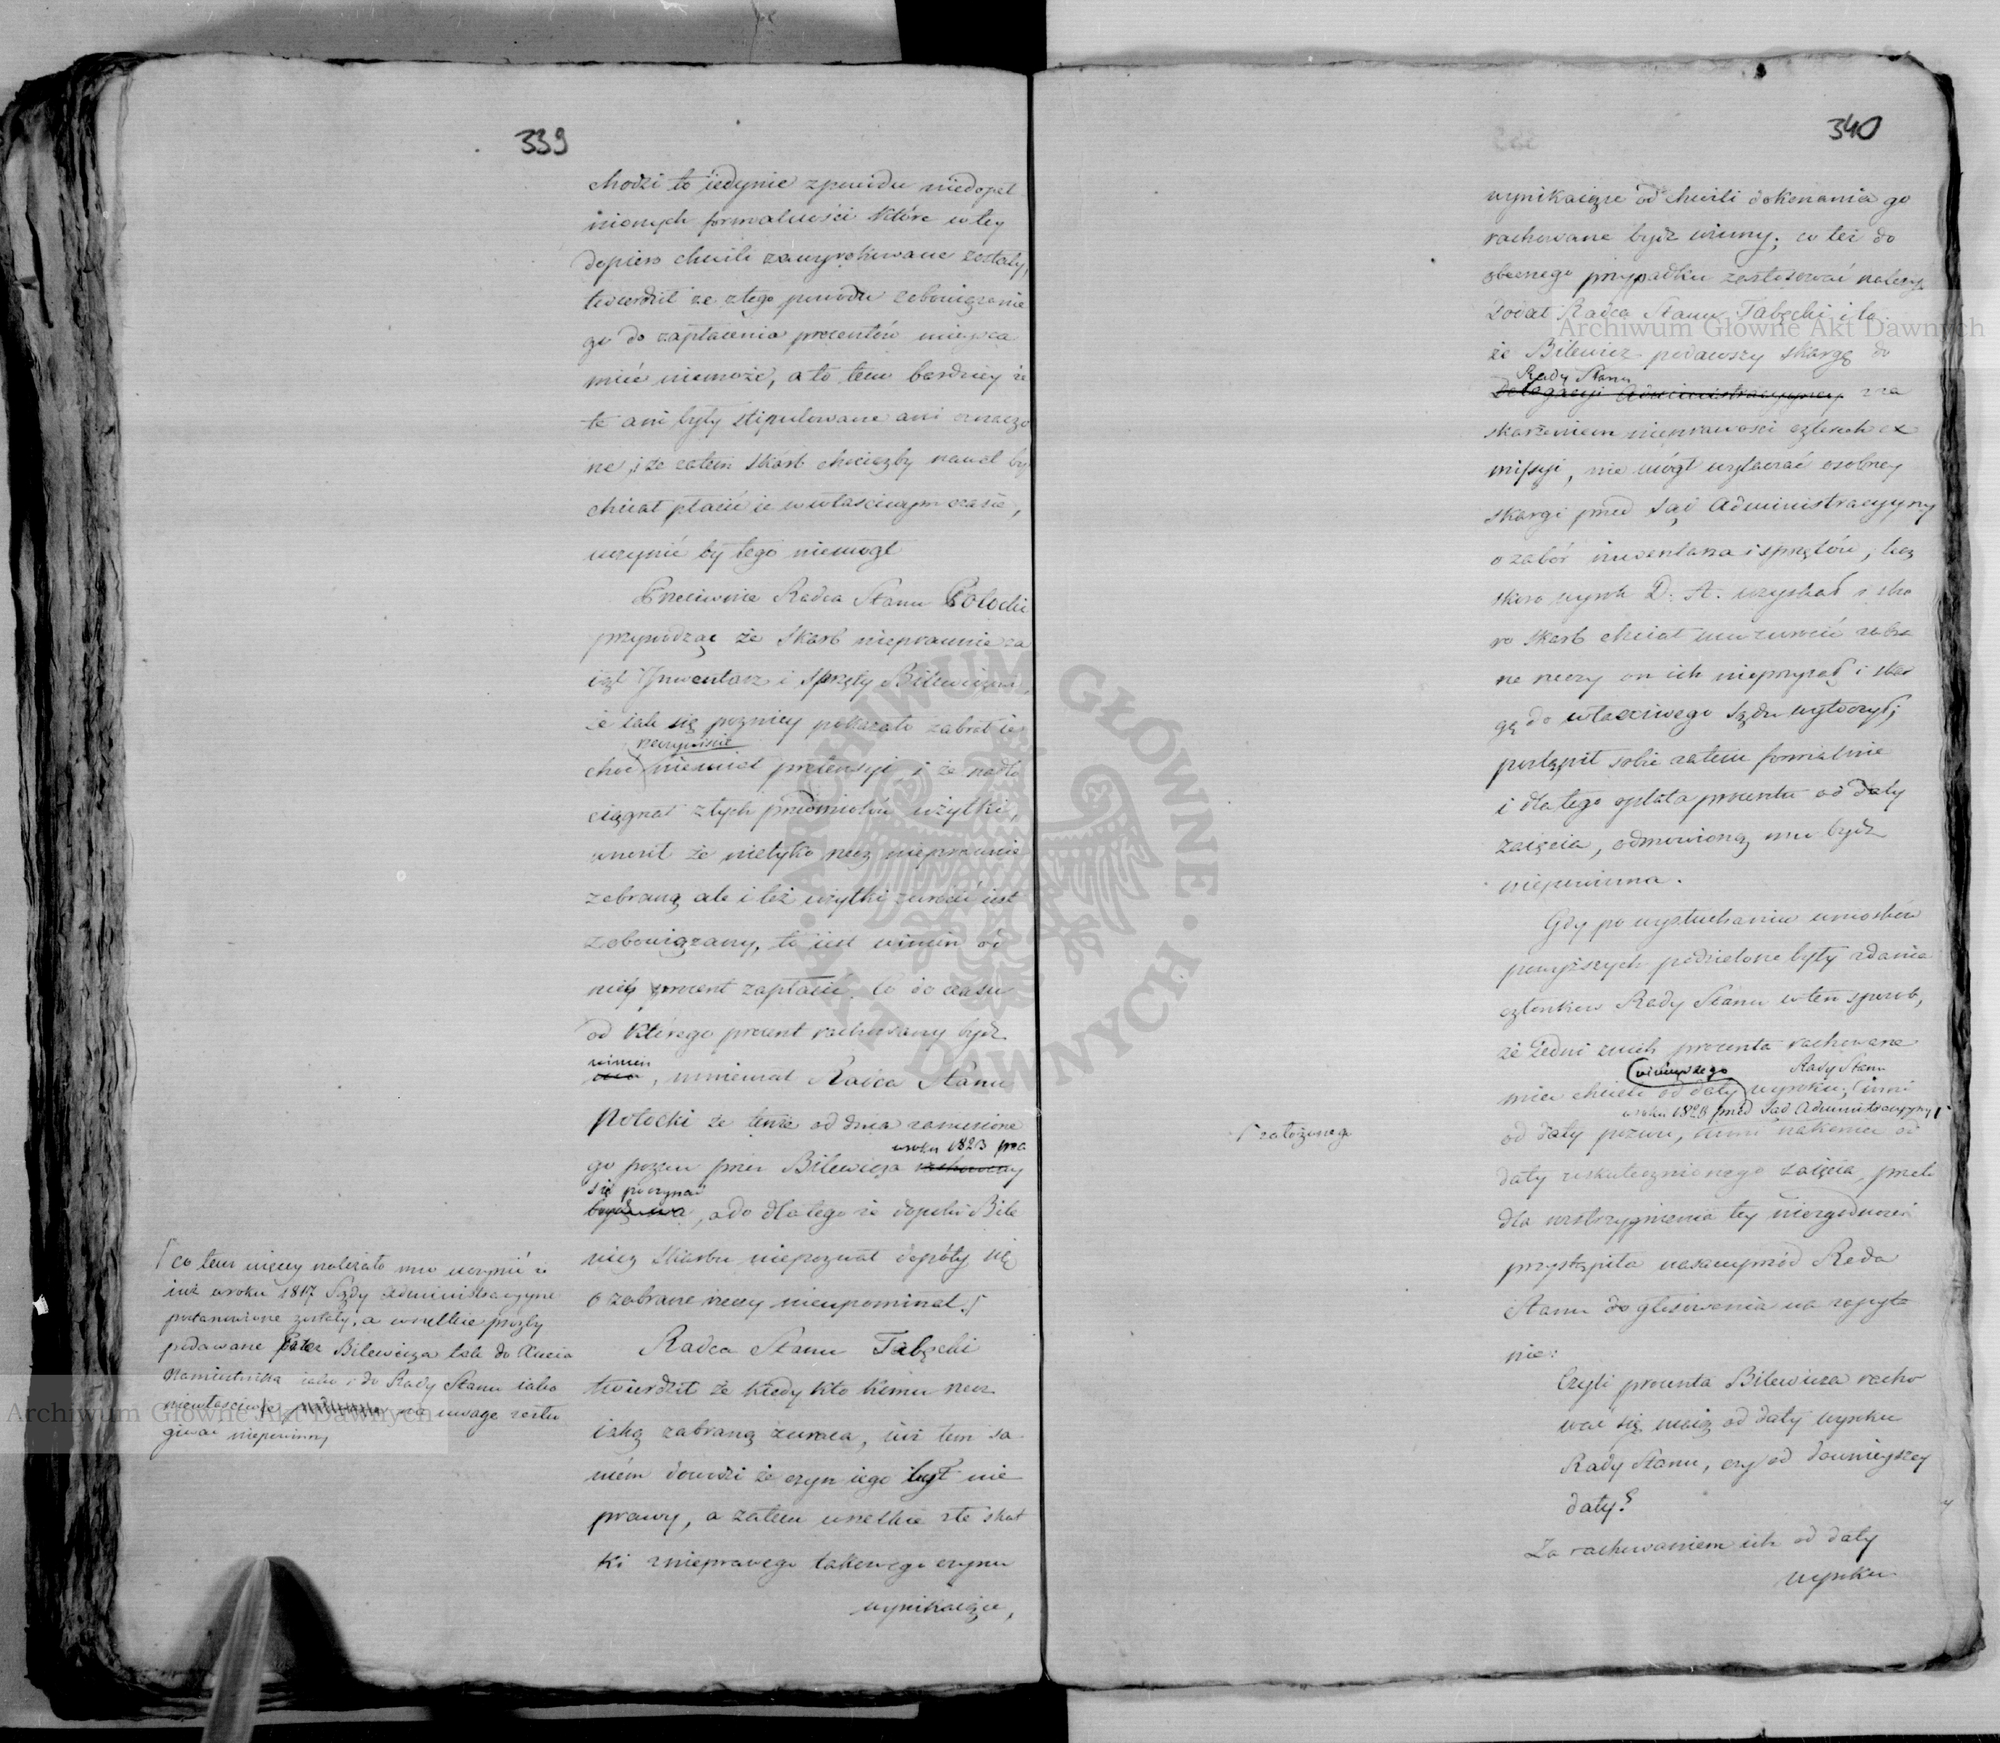 339
chodzi to iedynie z powodu niedopeł
nionych formalności które w tey
dopiero chwili zawyrokowane zostały,
twierdził że z tego powodu zobowiązanie
go do zapłacenia procentów mieysca
mieć niemoże, a to tem bardziey że
te ani były stipulowane ani oznaczo
ne, i że zatem Skarb chociażby nawet by
chciał płacić ie w właściwym czasie,
uczynić by tego niemógł
Przeciwnie Radca Stanu Potocki
przywodząc że Skarb nieprawnie za
iął Inwentarz i Sprzęty Bilewiczowi,
że iak się pozniey pokazało zabrał ie
rzeczywiście
choć niemiał pretensyi, i że nadto
ciągnął z tych przedmiotów użytki,
wnosił że nietylko rzecz nieprawnie
zabraną ale i też użytki zwrócić iest
zobowiązany, to iest winien od
niéy procent zapłacić. Co do czasu
od którego procent rachowany bydź
winien
, mniemał Radca Stanu
Potocki że tenże od dnia zaniesione
w roku 1823 poza
go pozwu przez Bilewicza rachowany
się poczynać
, a to dlatego że dopóki Bile
wicz Skarbu niepozwał dopóty się
o zabrane rzeczy nieupominał.
Radca Stanu Tabęcki
twierdził że kiedy kto komu rzecz
iaką zabraną zwraca, już tem sa
mém dowodzi że czyn iego był nie
prawy, a zatem wszelkie złe skut
ki z nieprawego takowego czynu
wynikaiące,
co tem więcey należało mu uczynić że
iuż w roku 1817 Sądy Administracyyne
postanowione zostały, a wszelkie prozby
podawane przez Bilewicza tak do Xięcia
Namiestnika iako i do Rady Stanu iako
niewłaściwe na uwagę zasłu
giwać niepowinny
340
wynikaiące od chwili dokonania go
rachowane bydź winny; co też do
obecnego przypadku zastosować należy.
Dodał Radca Stanu Tabęcki i to
że Bilewicz podawszy skargę do
Rady Stanu
Delegacyi Administracyyney za
skarżeniem nieprawości czterech ex
missyi, nie mógł wytaczać osobney
skargi przed Sąd Administracyyny
o zabór inwentarza i sprzętów, lecz
skoro wyrok D. A. uzyskał i sko
ro Skarb chciał mu zwrócić zabra
ne rzeczy on ich nieprzyiął i skar
gę do właściwego Sądu wytoczył;
postąpił sobie zatem formalnie
i dlatego opłata procentu od daty
zaięcia, odmówioną mu bydź
niepowinna.
Gdy po wysłuchaniu wniosków
powyższych podzielone były zdania
członków Rady Stanu w ten sposób,
że iedni z nich procenta rachowane
ninieyszego Rady Stanu
mieć chcieli od daty wyroku; inni
w roku 1823 przed Sąd Administracyyny
od daty pozwu, inni nakoniec od
założonego
daty uskutecznionego zaięcia, przeto
dla rozstrzygnienia tey niezgodności
przystąpiła nasamprzód Rada
Stanu do głosowania na zapyta
nie:
Czyli procenta Bilewicza racho
wać się maią od daty wyroku
Rady Stanu, czy od dawnieyszey
daty?
Za rachowaniem ich od daty
wyroku
Archiwum Główne Akt Dawnych
Archiwum Główne Akt Dawnych
ARCHIWUM GŁÓWNE · AKT DAWNYCH ·